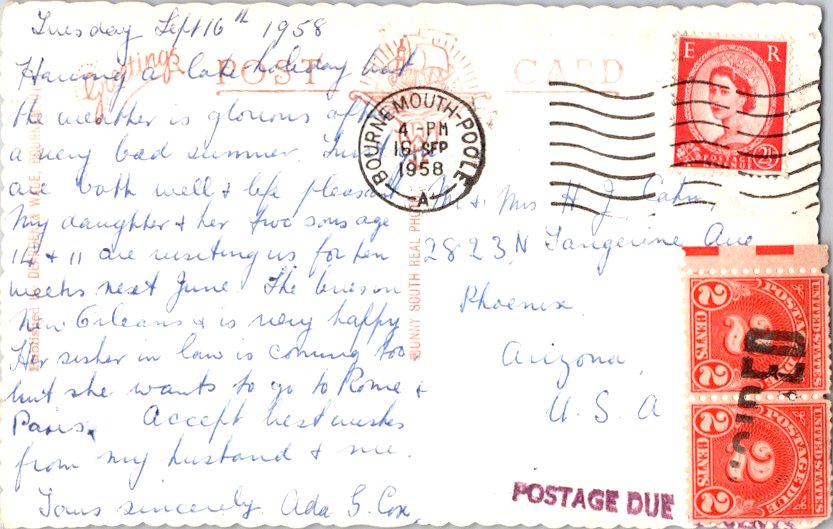 Tuesday Sept 16th 1958
Greetings
POST CARD
Having a late holiday but
the weather is glorious after
a very bad summer. Trust you
are both well & life pleasant
My daughter & her two sons age
14 & 11 are visiting us for ten
weeks next June. She lives in
New Orleans & is very happy
Her sister in law is coming too
but she wants to go to Rome &
Paris. Accept best wishes
from my husband & me.
Yours sincerely Ada G. Cox
BOURNEMOUTH-POOLE
4 - PM
16 SEP
1958
A
E R
2½
Mr & Mrs H J
2823 N Tangerine Ave
Phoenix
Arizona
U. S. A
SUNNY SOUTH REAL PHOTO
POSTAGE DUE
UNITED STATES
POSTAGE DUE
2 CENTS 2
UNITED STATES
POSTAGE DUE
2 CENTS 2